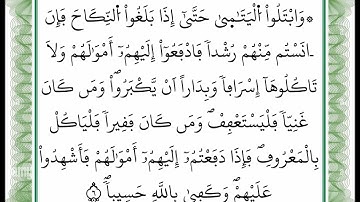 ۞وَابْتَلُواْ اُ۬لْيَتَٰم۪يٰ حَتَّيٰٓ إِذَا بَلَغُواْ اُ۬لنِّكَاحَ فَإِنَ
اٰنَسْتُم مِّنْهُمْ رُشْداٗ فَادْفَعُوٓاْ إِلَيْهِمُۥٓ أَمْوَٰلَهُمْ وَلَا
تَاكُلُوهَآ إِسْرَافاٗ وَبِدَاراً اَنْ يَّكْبَرُواْۖ وَمَن كَانَ
غَنِيّاٗ فَلْيَسْتَعْفِفْۖ وَمَن كَانَ فَقِيراٗ فَلْيَاكُلْ
بِالْمَعْرُوفِۖ فَإِذَا دَفَعْتُمُۥٓ إِلَيْهِمُۥٓ أَمْوَٰلَهُمْ فَأَشْهِدُواْ
عَلَيْهِمْۖ وَكَف۪يٰ بِاللَّهِ حَسِيباٗۖ ٦